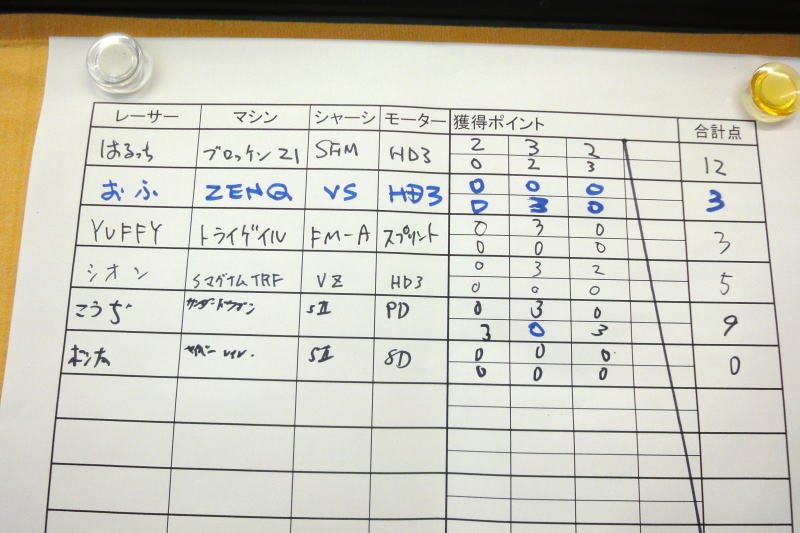 レーサー マシン シャーシ モーター 獲得ポイント 合計点
はるっち ブロッケンZ1 SFM HD3 2 3 2 12
0 2 3
おふ ZENQ VS HD3 0 0 0 3
0 3 0
YUFFY トライゲイル FM-A スプリント 0 3 0 3
0 0 0
シオン SマグナムTRF VZ HD3 0 3 2 5
0 0 0
こうぢ SII PD 0 3 0 9
3 0 3
SII SD 0 0 0 0
0 0 0